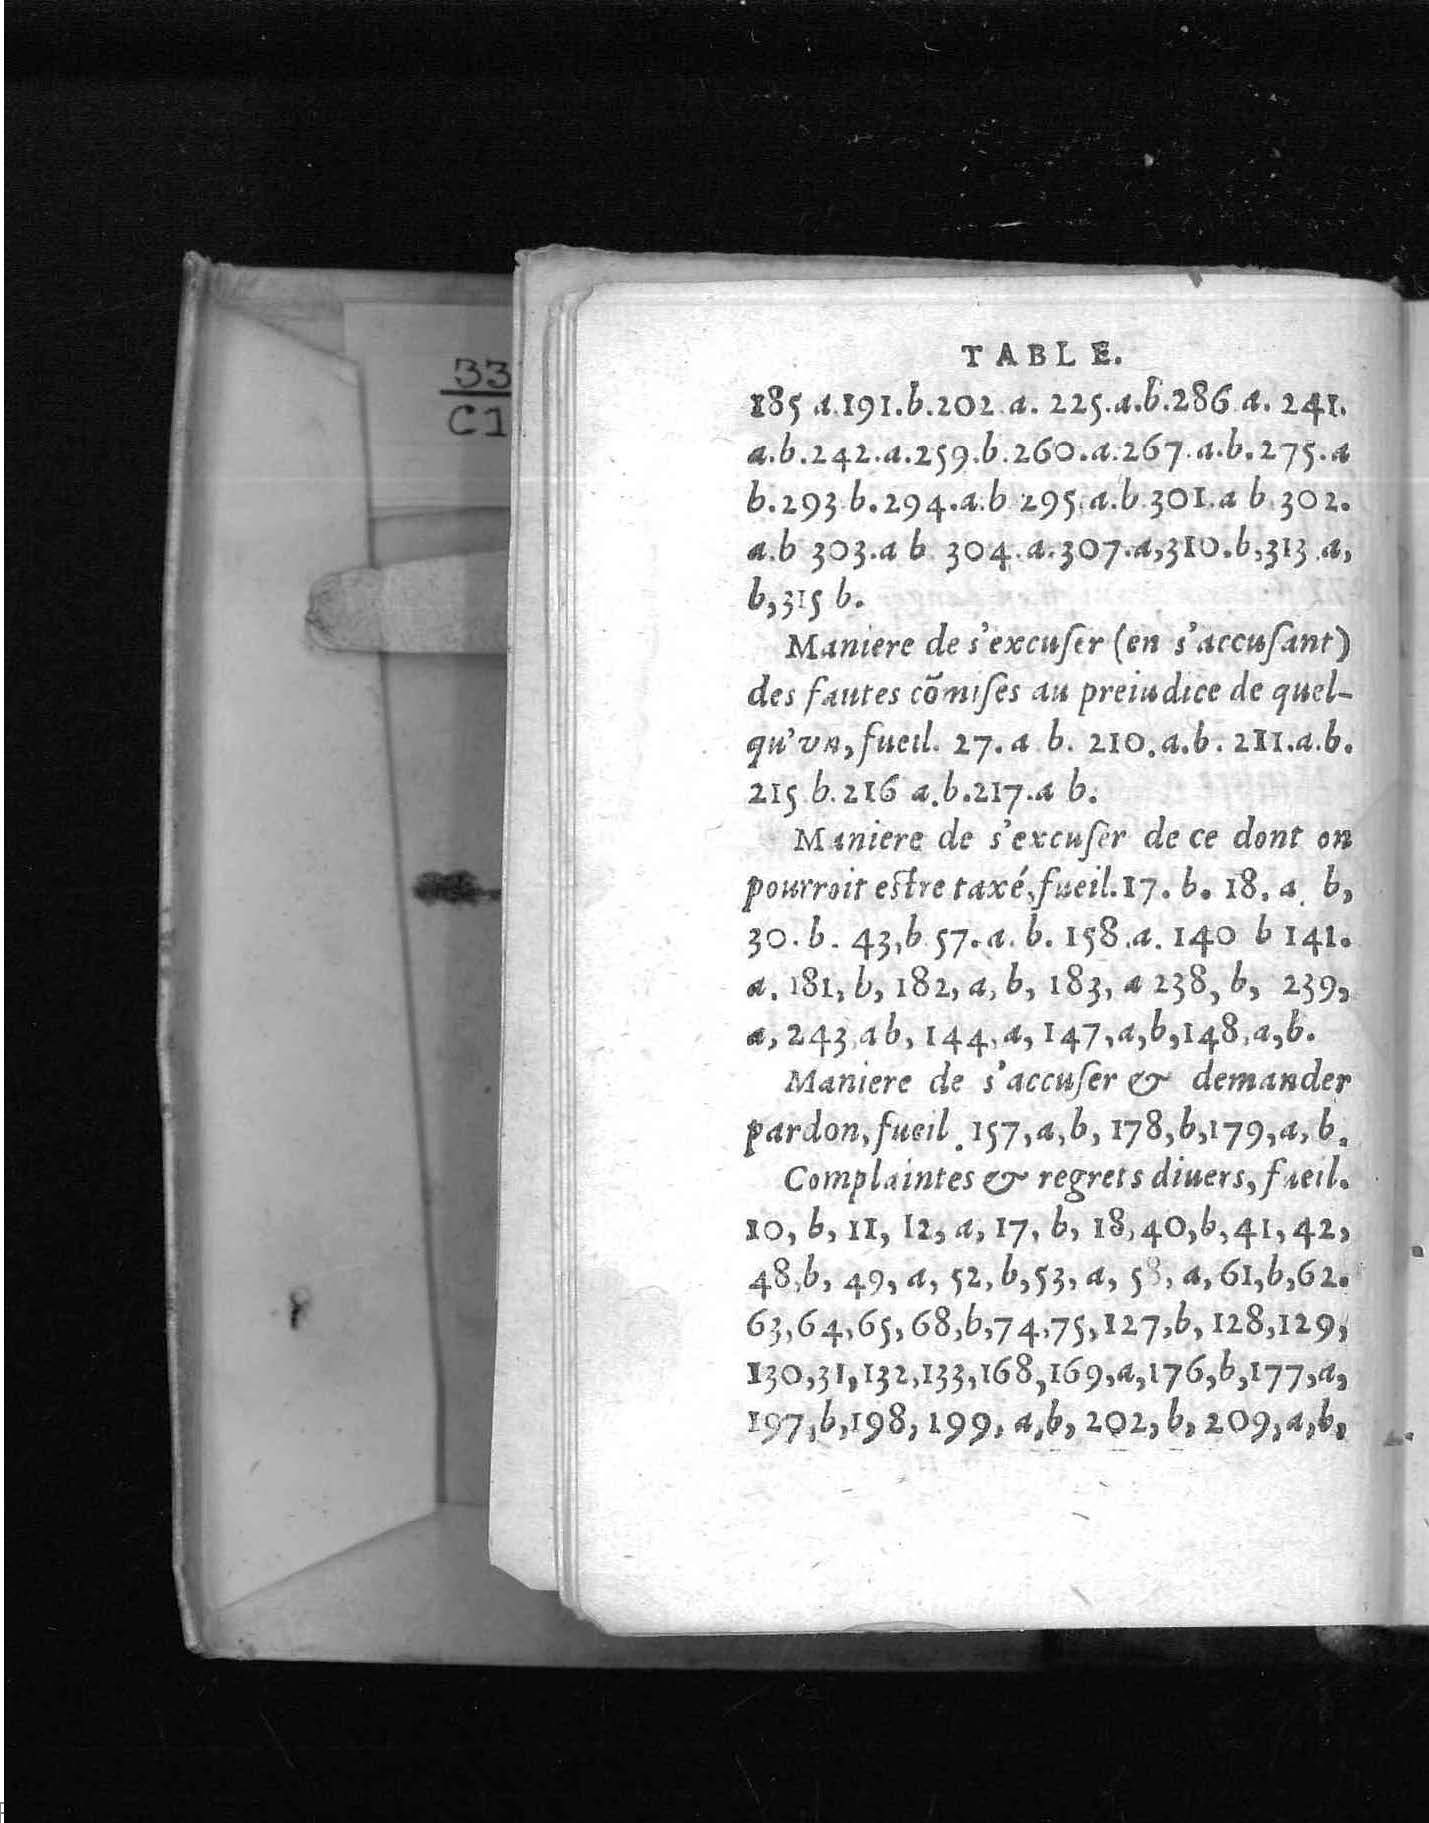 33
C1
TABLE.
185 a.191.b.202.a. 225.a.b.286.a. 241.
a.b.242.a.259.b.260.a.267.a.b.275.a
b.293.b.294.a.b 295.a.b.301.a b.302.
a.b 303.a b 304.a.307.a,310.b,313.a,
b,315 b.
Maniere de s'excuſer (en s'accuſant)
des fautes cõmiſes au preiudice de quel-
qu'vn, fueil. 27. a b. 210.a.b. 211.a.b.
215 b.216 a.b.217.a b.
Maniere de s'excuſer de ce dont on
pourroit eſtre taxé, fueil.17. b. 18. a. b,
30. b. 43,b 57.a. b. 158.a. 140 b 141.
a. 181, b, 182, a, b, 183, a 238, b, 239,
a, 243,ab, 144,a, 147,a,b,148,a,b.
Maniere de s'accuſer & demander
pardon, fueil. 157,a,b, 178,b,179,a, b.
Complaintes & regrets diuers, fueil.
10, b, 11, 12, a, 17, b, 18,40,b,41,42,
48,b, 49, a, 52, b,53, a, 58, a,61,b,62.
63,64,65,68,b,74,75,127,b, 128,129,
130,31,132,133,168,169,a,176,b,177,a,
197,b,198, 199, a,b, 202, b, 209,a,b,